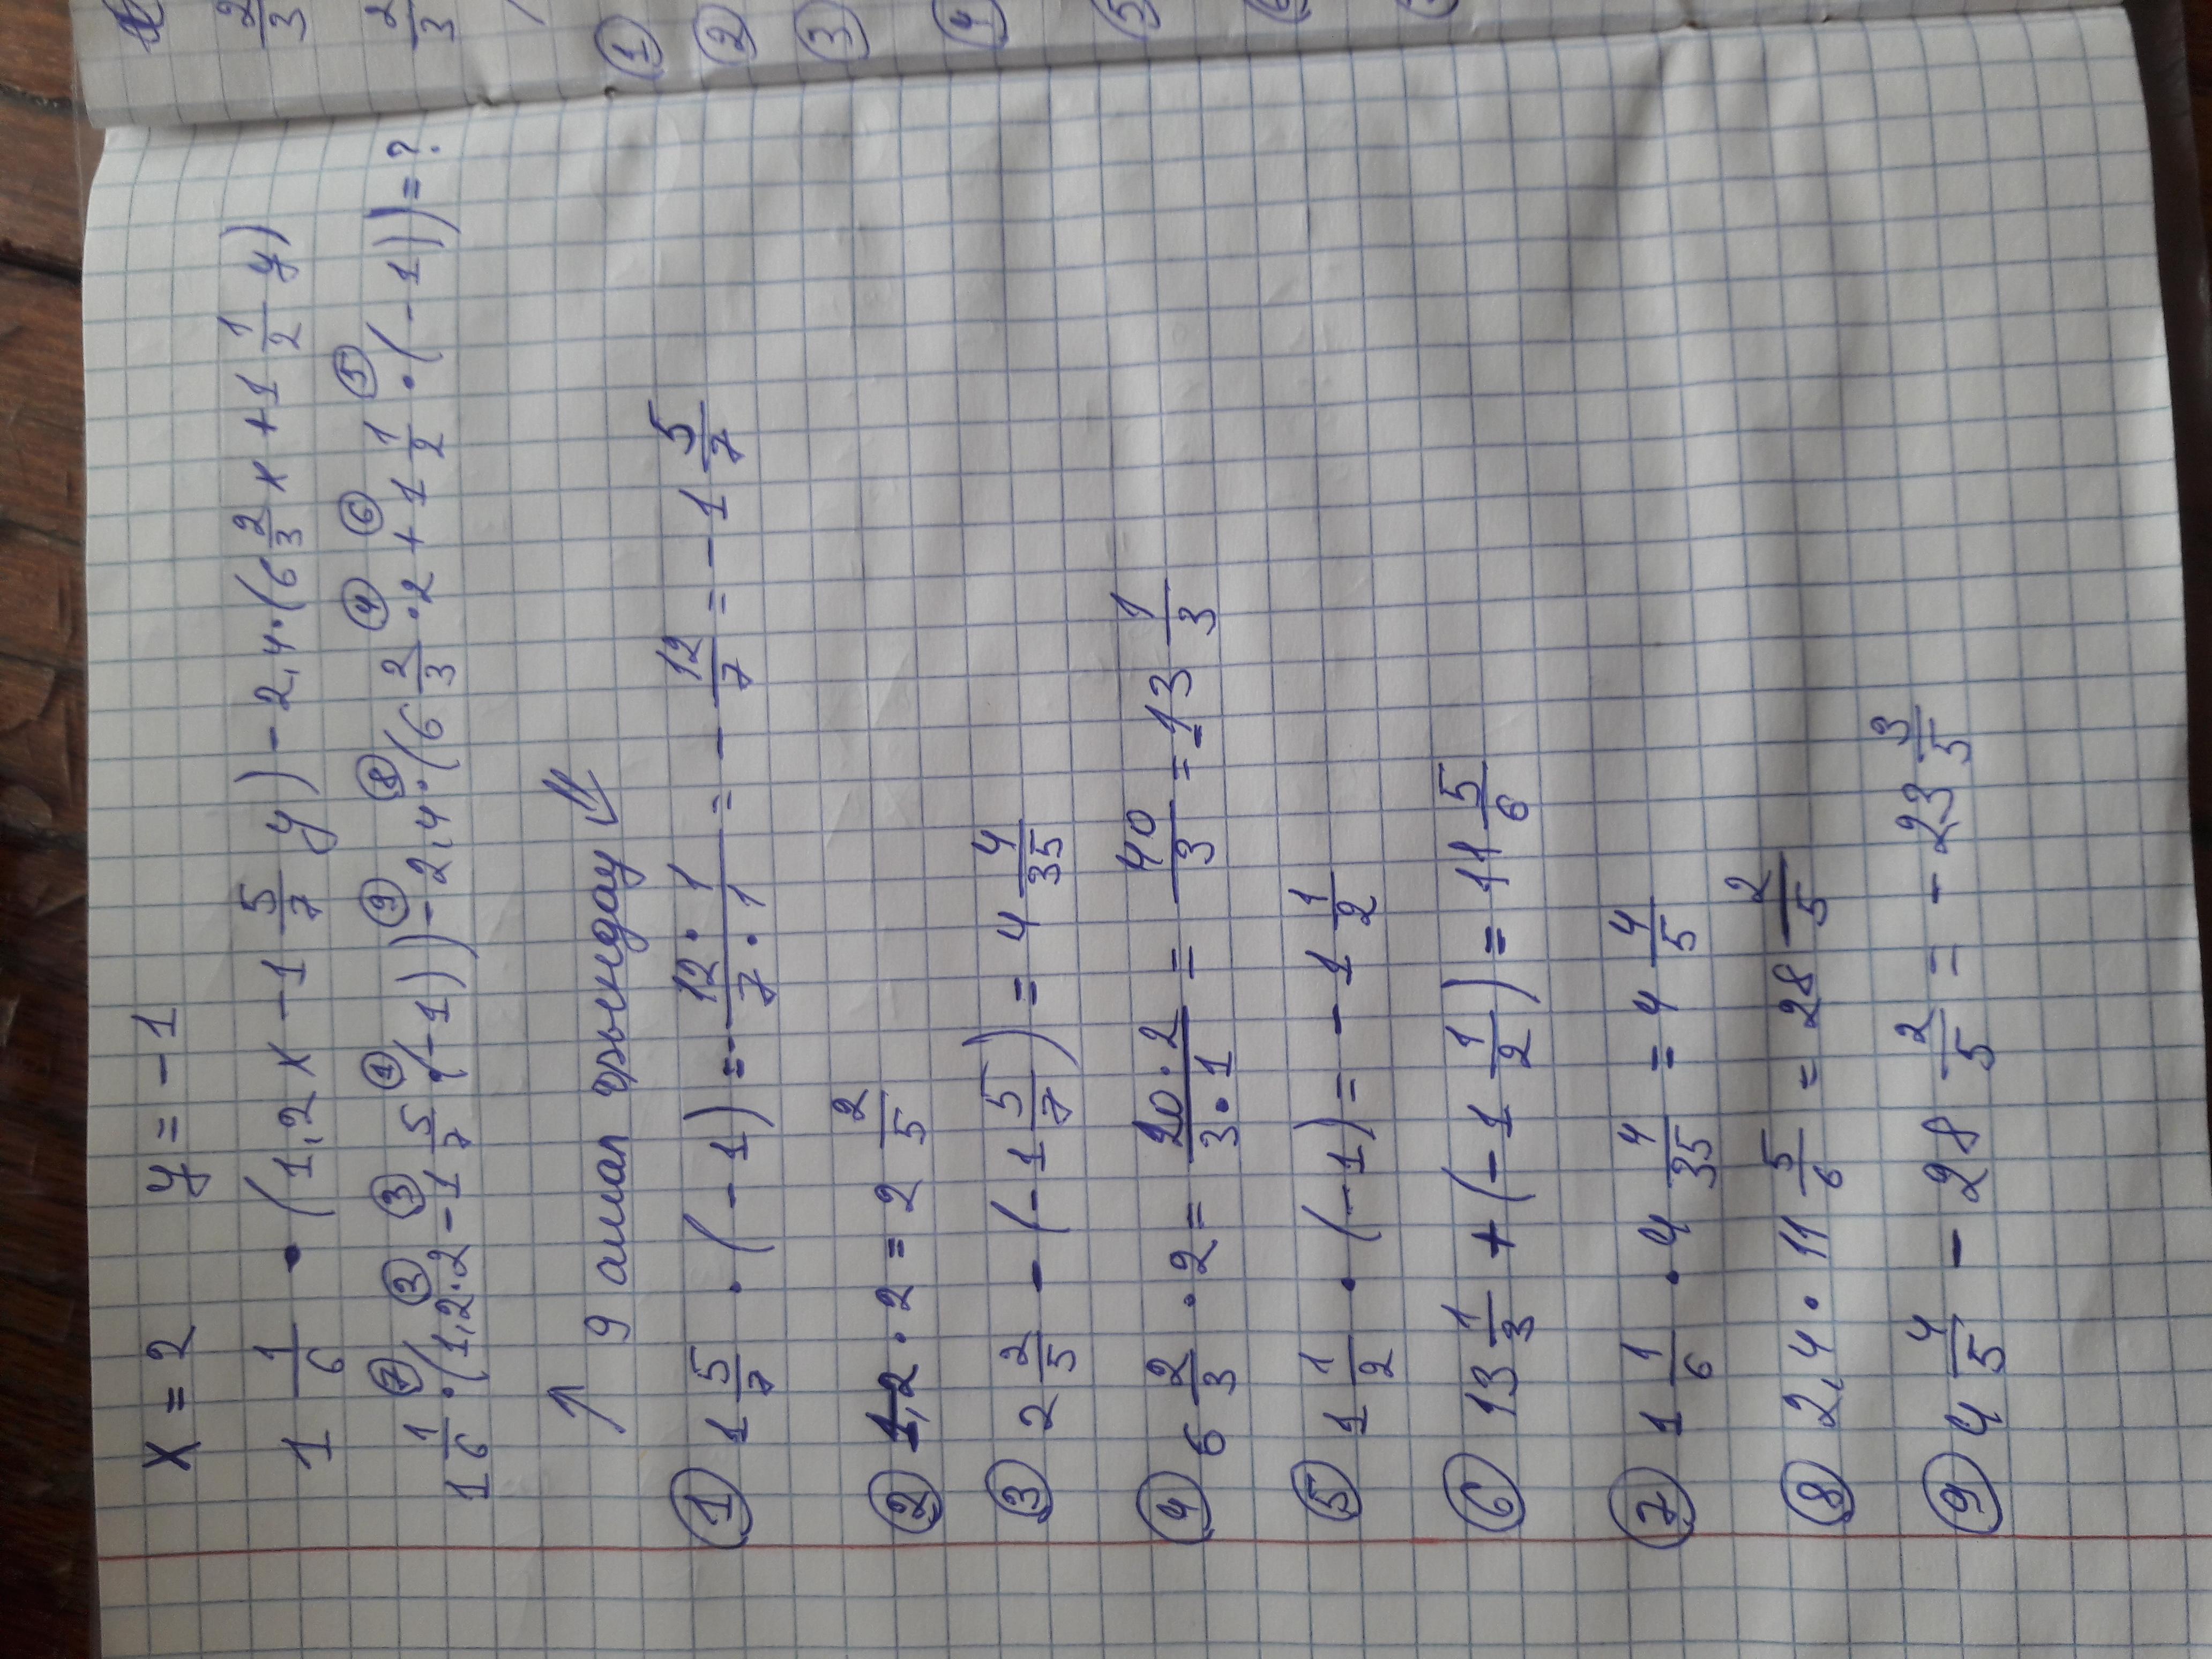 x = 2 y = -1
1 1/6 · (1,2x - 1 5/7 y) - 2,4 · (6 2/3 x + 1 1/2 y)
1 1/6 ⑦· (1,2 ②· 2 ③- 1 5/7 ①· (-1)) ⑨- 2,4 ⑧· (6 2/3 ④· 2 ⑥+ 1 1/2 ⑤· (-1)) = ?
↑ 9 амал орындау ⇓
① 1 5/7 · (-1) = - 12 · 1 / 7 · 1 = - 12/7 = - 1 5/7
② 1,2 · 2 = 2 2/5
③ 2 2/5 - (-1 5/7) = 4 4/35
④ 6 2/3 · 2 = 20 · 2 / 3 · 1 = 40/3 = 13 1/3
⑤ 1 1/2 · (-1) = - 1 1/2
⑥ 13 1/3 + (-1 1/2) = 11 5/6
⑦ 1 1/6 · 4 4/35 = 4 4/5
⑧ 2,4 · 11 5/6 = 28 2/5
⑨ 4 4/5 - 28 2/5 = - 23 3/5
2/3
2/3
①
②
③
④
⑤